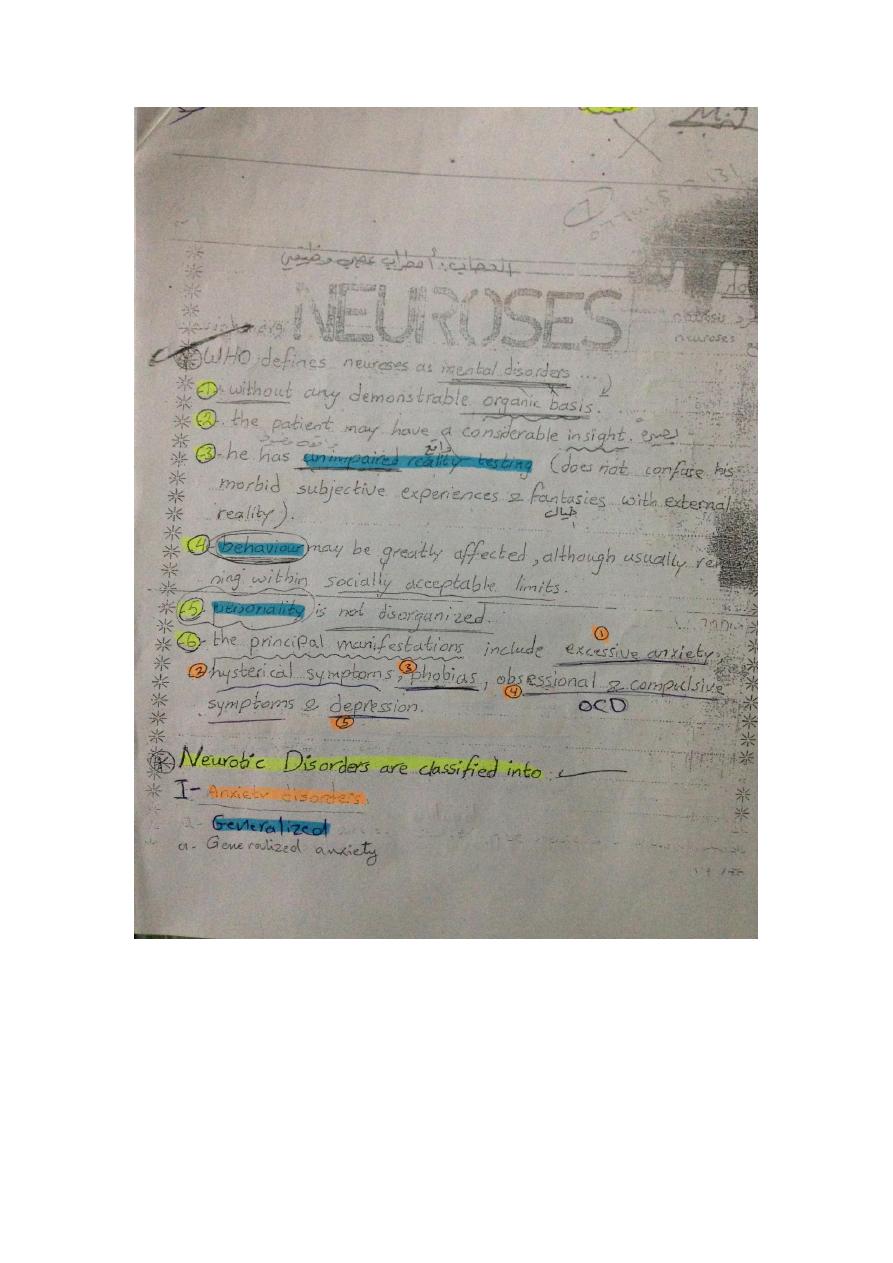 M.J
العصاب: أضطراب عصبي وظيفي
NEUROSES
neuroses
WHO defines neuroses as mental disorders ...
-1- without any demonstrable organic basis.
-2- the patient may have a considerable insight.
واقع
-3- he has unimpaired reality testing (does not confuse his
morbid subjective experiences & fantasies with external
خيال
reality).
-4- behaviour may be greatly affected, although usually
ning within socially acceptable limits.
-5- personality is not disorganized.
1
-6- the principal manifestations include excessive anxiety
2 hysterical symptoms, 3 phobias, obsessional & compulsive
4
symptoms & depression. OCD
5
Neurotic Disorders are classified into:
I- Anxiety disorders.
Generalized
a- Generalized anxiety